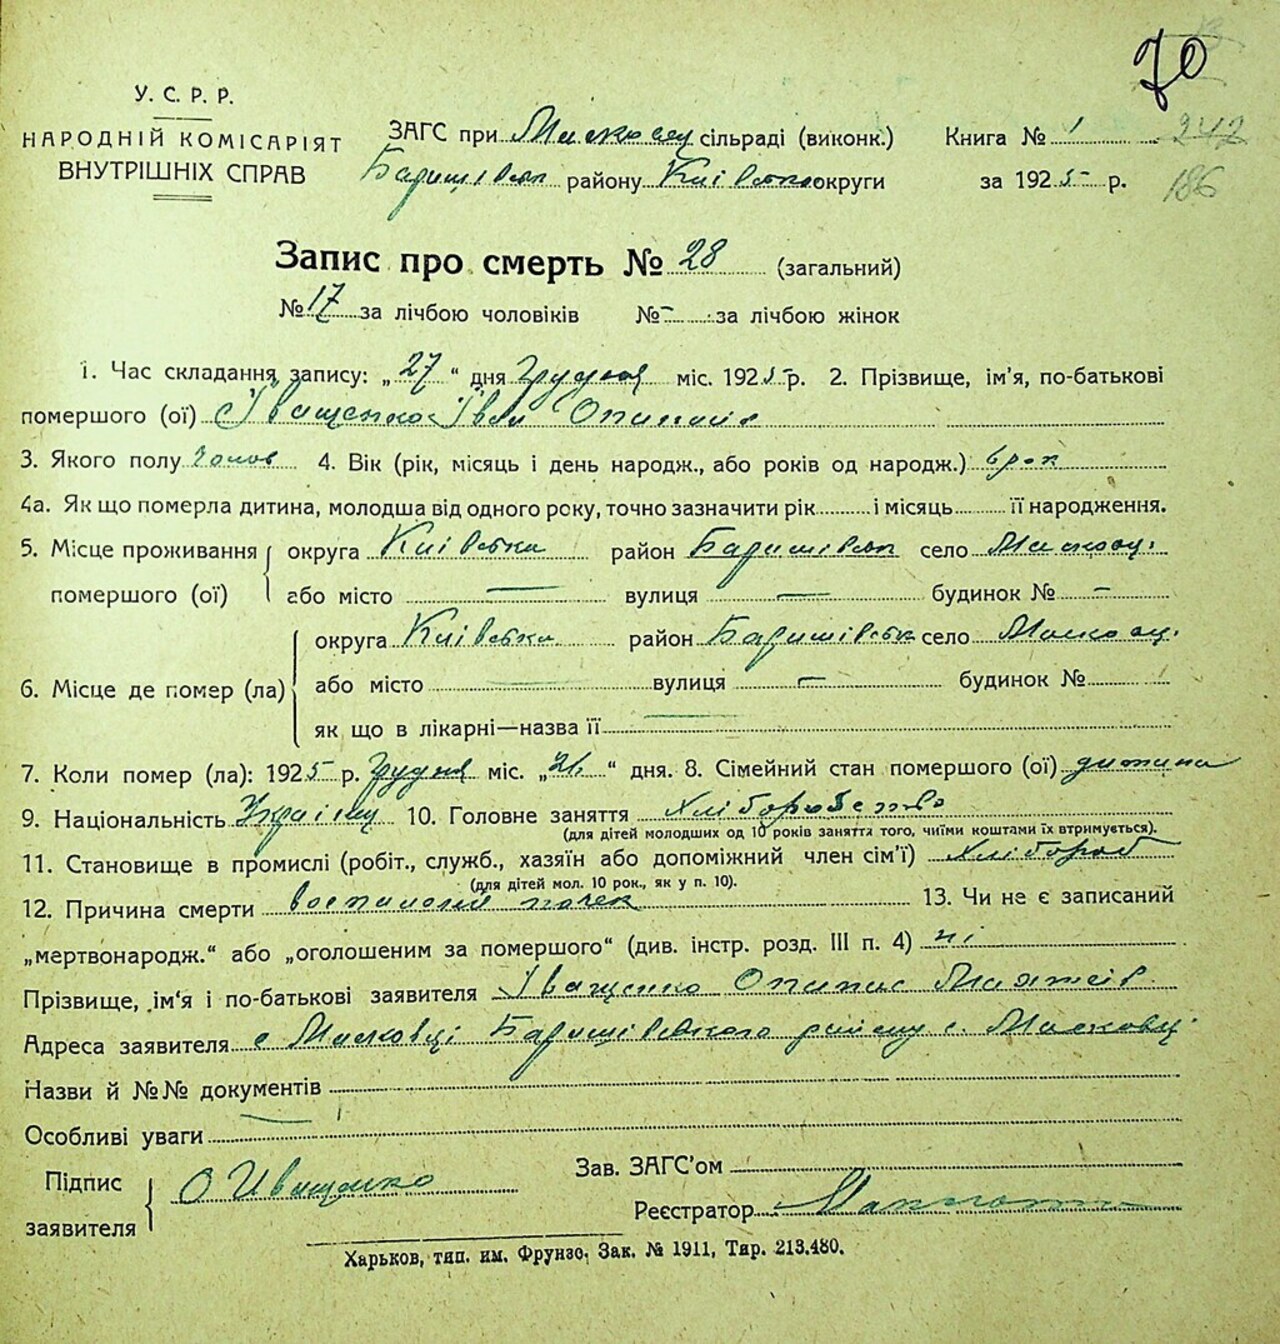 70
У. С. Р. Р.
НАРОДНІЙ КОМІСАРІЯТ
ВНУТРІШНІХ СПРАВ
ЗАГС при сільраді (виконк.)
Баришівськ району Київськ округи
Книга № 1 242
за 1925 р. 186
Запис про смерть № 28 (загальний)
№ 17 за лічбою чоловіків № - за лічбою жінок
1. Час складання запису: „27“ дня Грудня міс. 1925 р. 2. Прізвище, ім'я, по-батькові
помершого (ої) Іващенко Іван
3. Якого полу 4. Вік (рік, місяць і день народж., або років од народж.)
4а. Як що померла дитина, молодша від одного року, точно зазначити рік і місяць її народження.
5. Місце проживання помершого (ої) округа Київська район Баришівськ село Масковці
або місто — вулиця — будинок № -
6. Місце де помер (ла) округа Київська район Баришівськ село Масковці
або місто — вулиця — будинок №
як що в лікарні—назва її —
7. Коли помер (ла): 1925 р. Грудня міс. „ “ дня. 8. Сімейний стан помершого (ої) дитина
9. Національність 10. Головне заняття хліборобство
(для дітей молодших од 10 років заняття того, чиїми коштами їх втримується).
11. Становище в промислі (робіт., служб., хазяїн або допоміжний член сім'ї) хлібороб
(для дітей мол. 10 рок., як у п. 10).
12. Причина смерти почек 13. Чи не є записаний
„мертвонародж.“ або „оголошеним за помершого“ (див. інстр. розд. III п. 4) ні
Прізвище, ім'я і по-батькові заявителя Іващенко Опанас
Адреса заявителя с Масковці Баришівського району с. Масковці
Назви й №№ документів
Особливі уваги —
Підпис заявителя О Иващенко
Зав. ЗАГС'ом
Реєстратор
Харьков, тип. им. Фрунзе, Зак. № 1911, Тир. 213.480.